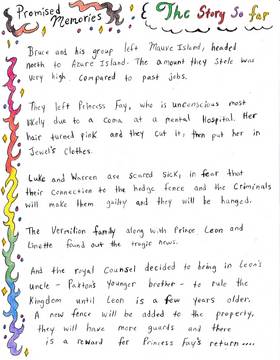 Promised
Memories
The Story So far
Bruce and his group left Mauve Island, headed
north to Azure Island. The amount they stole was
very high compared to past jobs.
They left Princess Fay, who is unconscious most
likely due to a coma at a mental Hospital. Her
hair turned pink and they cut it, then put her in
Jewel's clothes.
Luke and Warren are scared sick, in fear that
their connection to the hedge fence and the Criminals
will make them guilty and they will be hanged.
The Vermilion family along with Prince Leon and
Linette found out the tragic news.
And the royal Counsel decided to bring in Leon's
uncle - Paxton's younger brother - to rule the
Kingdom until Leon is a few years older.
A new fence will be added to the property,
they will have more guards and there
is a reward for Princess Fay's return....